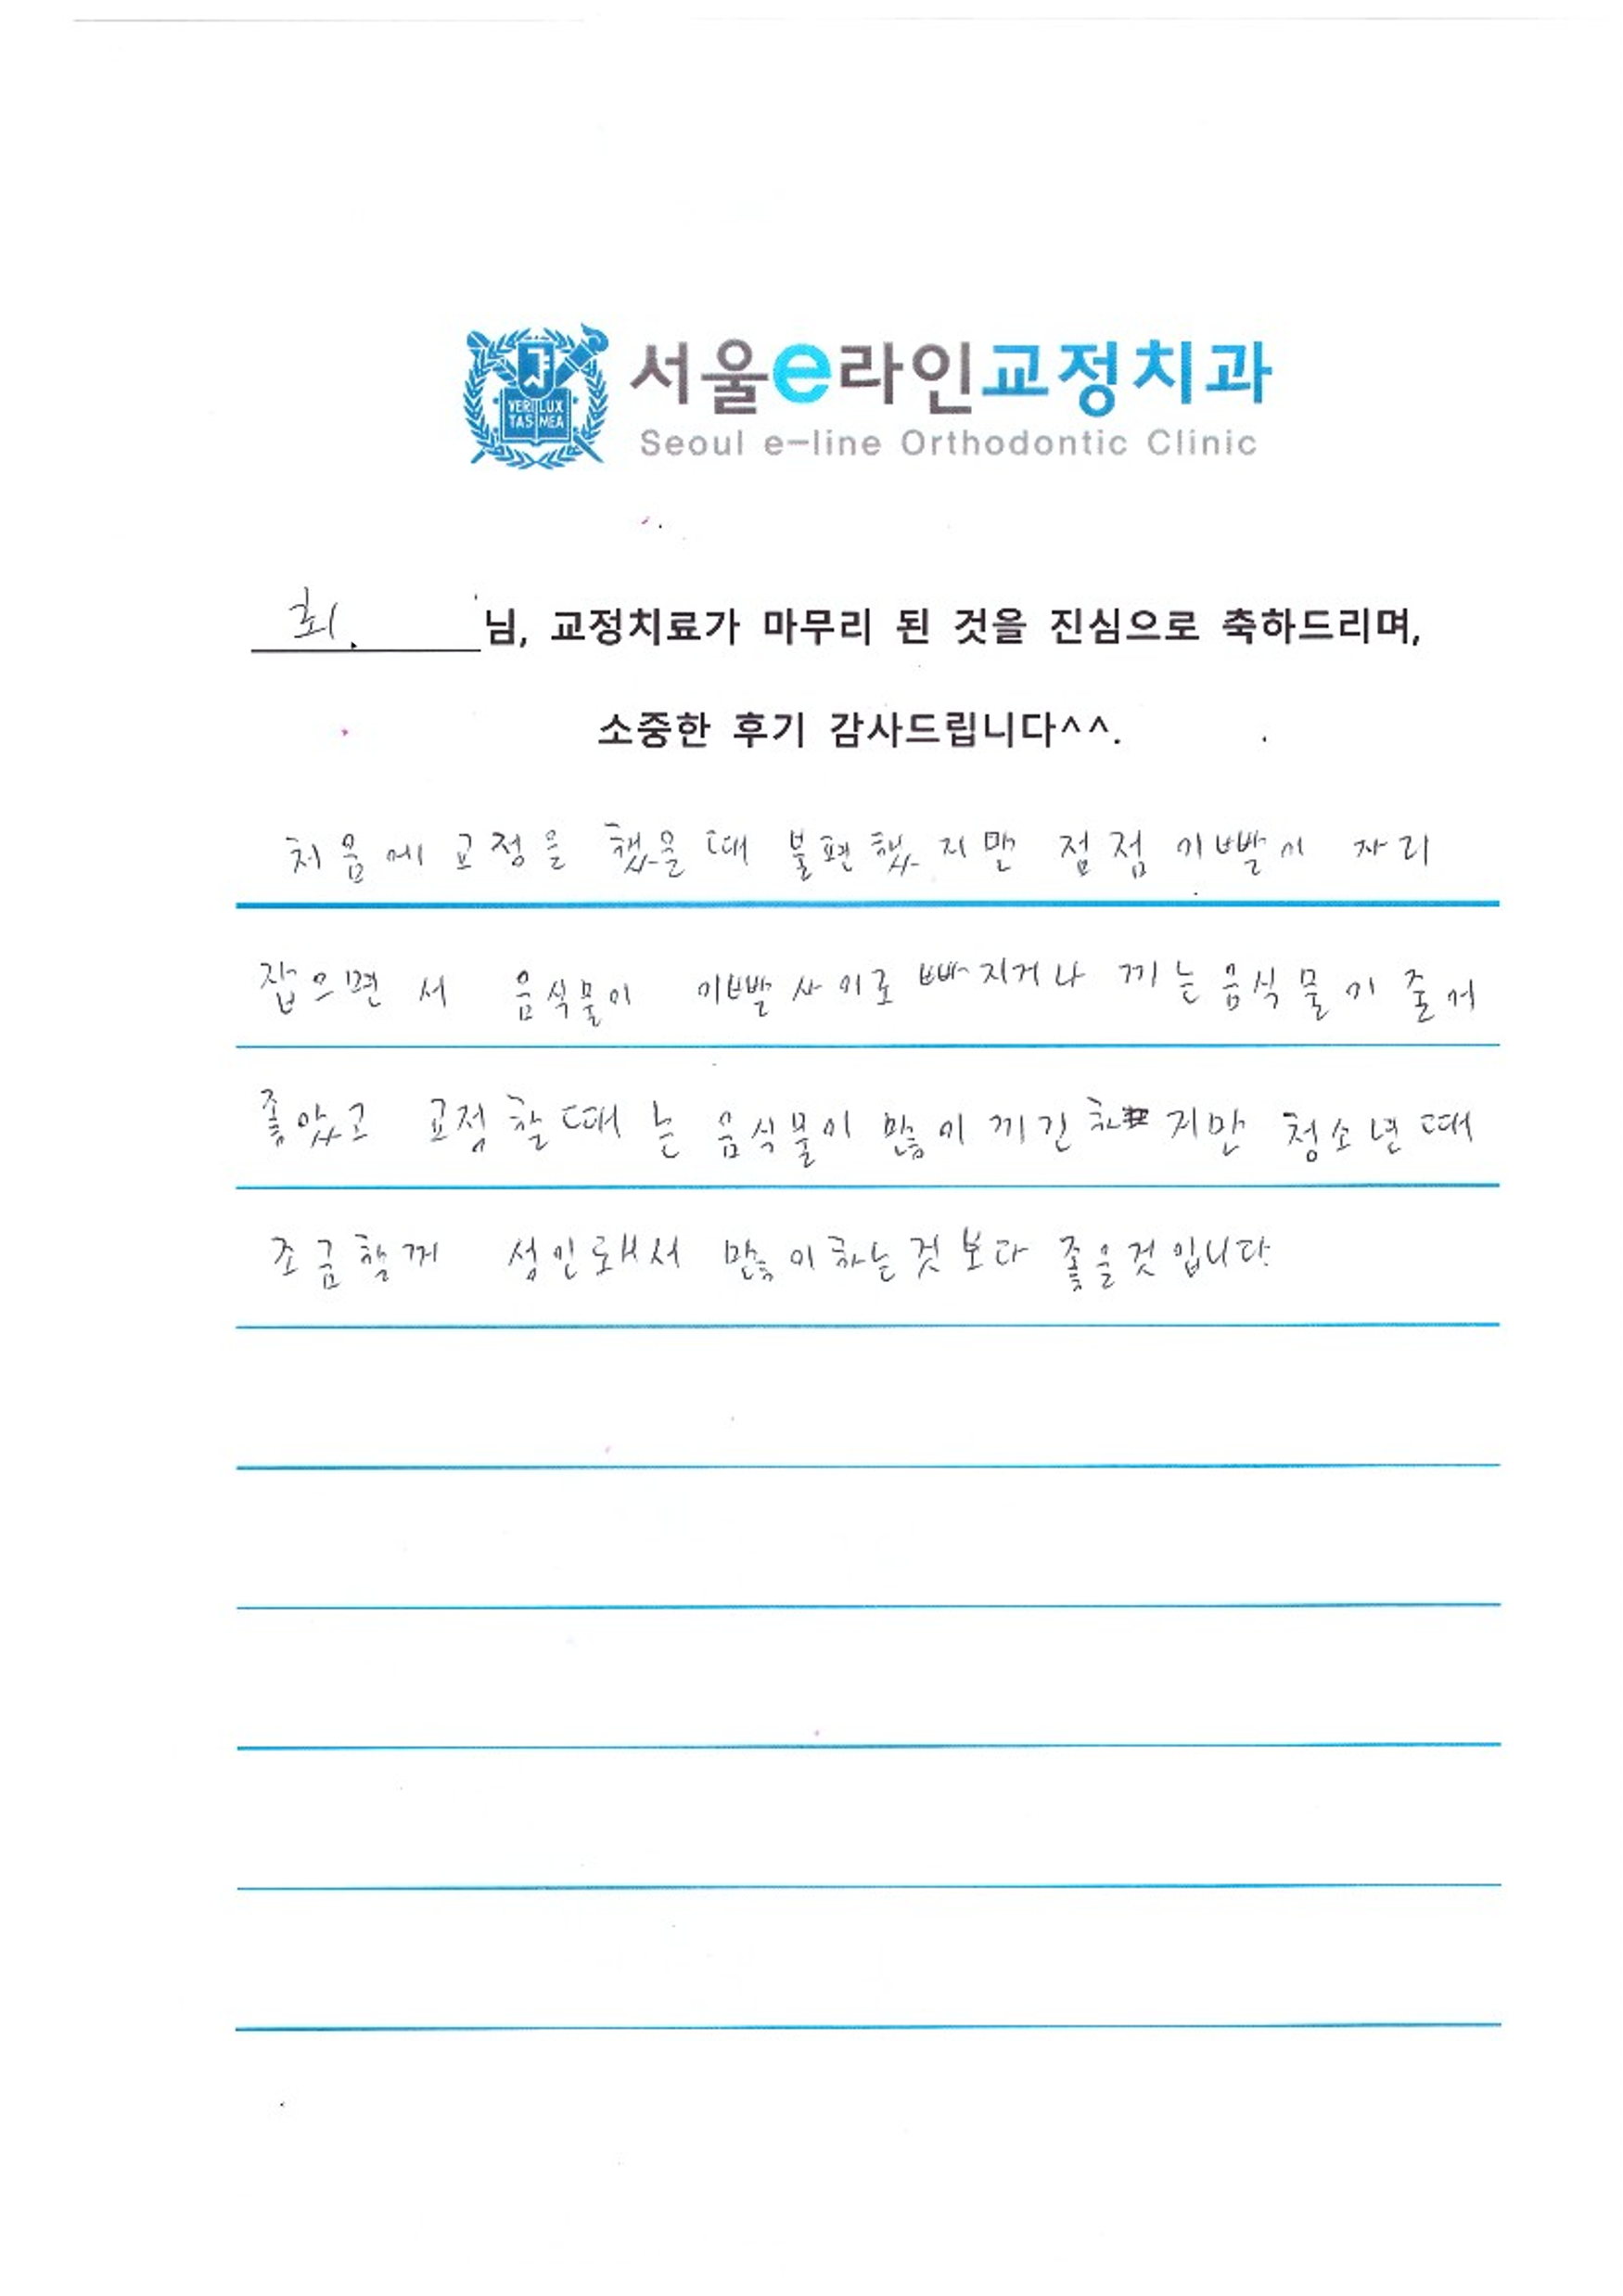 VERI LUX
TAS MEA
서울e라인교정치과
Seoul e-line Orthodontic Clinic
최. 님, 교정치료가 마무리 된 것을 진심으로 축하드리며,
소중한 후기 감사드립니다^^.
처음에 교정을 했을때 불편했지만 점점 이빨이 자리
잡으면서 음식물이 이빨사이로 빠지거나 끼는 음식물이 줄어
좋았고 교정할때는 음식물이 많이 끼긴 하지만 청소년때
조금할께 성인되서 많이하는것보다 좋을것입니다